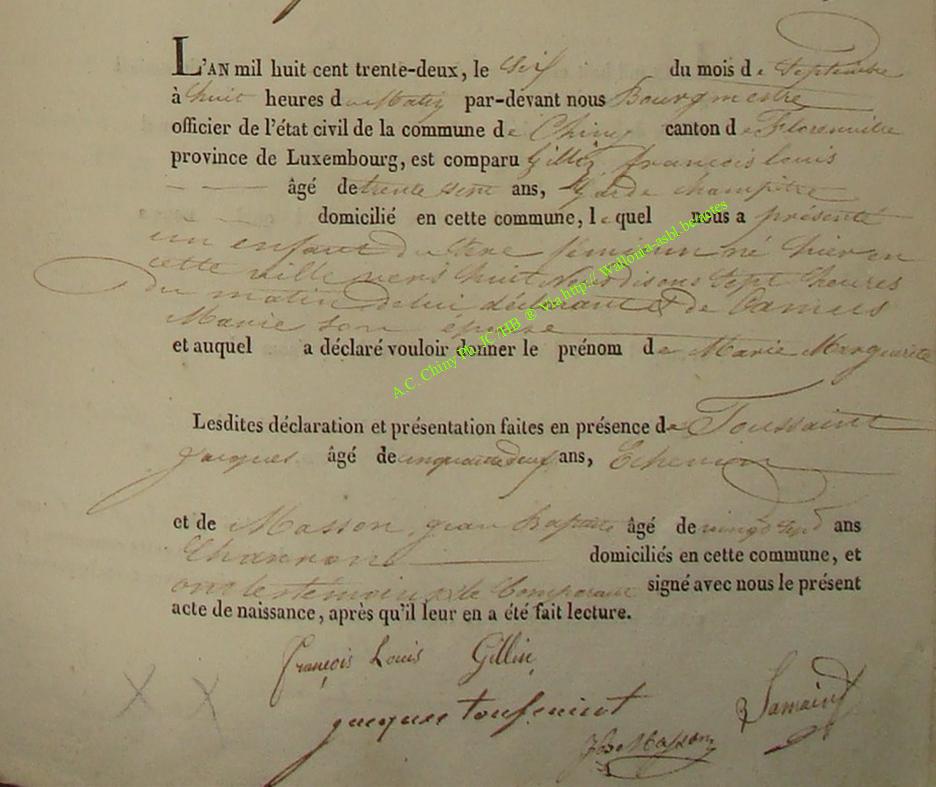 L'AN mil huit cent trente-deux, le Six du mois de Septembre
à huit heures du Matin par-devant nous Bourgmestre
officier de l'état civil de la commune de Chiny canton de Florenville
province de Luxembourg, est comparu Gillin françois louis
âgé de trente ans, Garde champêtre
domicilié en cette commune, lequel nous a présenté
un enfant du féminin né hier en
cette ville vers huit disons Sept heures
du matin de lui déclarant & de Camus
Marie son épouse
et auquel a déclaré vouloir donner le prénom de Marie Marguerite
Lesdites déclaration et présentation faites en présence de Toussaint
Jacques âgé de cinquante neuf ans, Echevin
et de Masson, jean Baptiste âgé de vingt sept ans
Charron domiciliés en cette commune, et
ont les témoins & le Comparant signé avec nous le présent
acte de naissance, après qu'il leur en a été fait lecture.
françois Louis Gillin
jacques toussaint
JBte Masson
A.C. Chiny Ph. JC/HB ® Via http://Wallonia-asbl.be notes